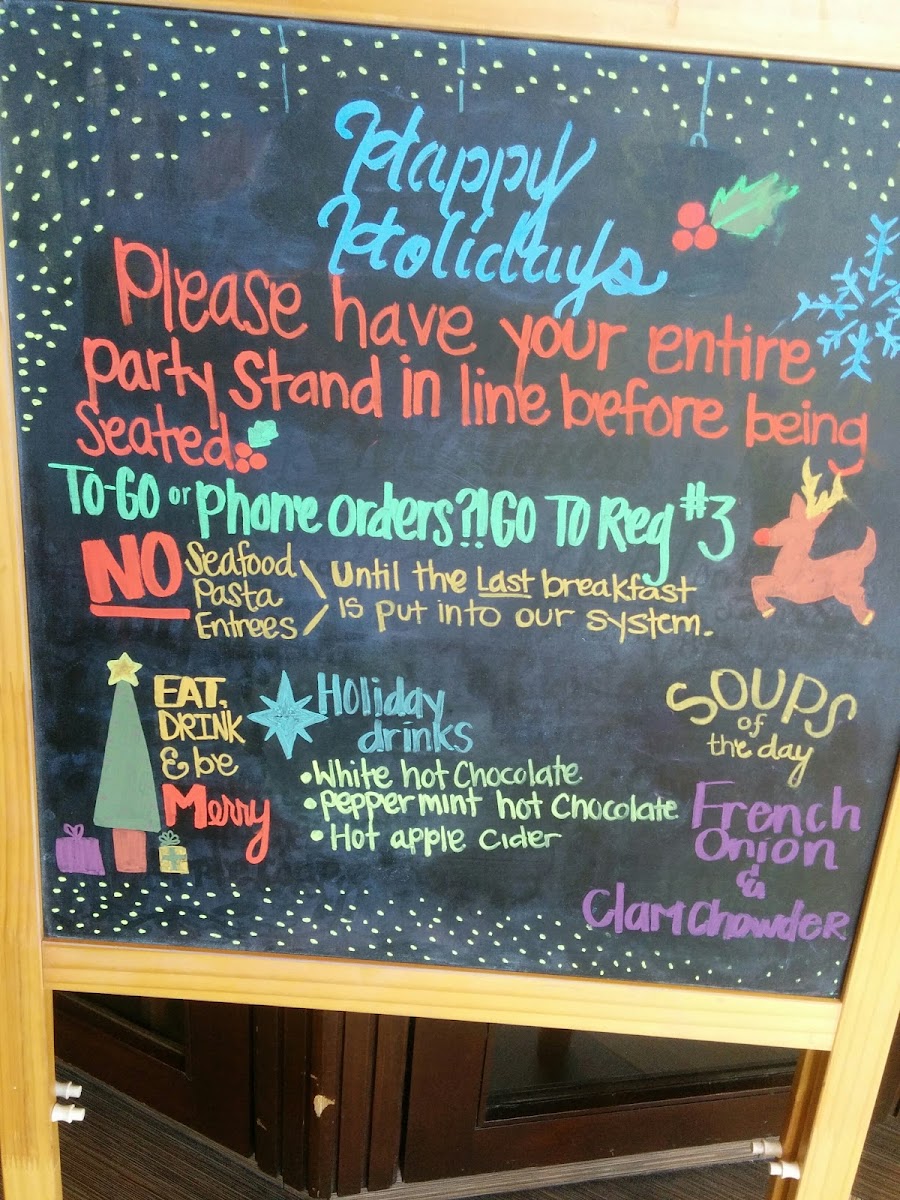 Happy
Holidays
Please have your entire
party stand in line before being
seated
To-Go or Phone orders?! Go To Reg #3
NO Seafood Pasta Entrees
Until the Last breakfast
is put into our system.
EAT,
DRINK
& be
Merry
Holiday
drinks
• White hot Chocolate
• peppermint hot Chocolate
• Hot apple cider
SOUPS
of
the day
French
Onion
&
Clam Chowder